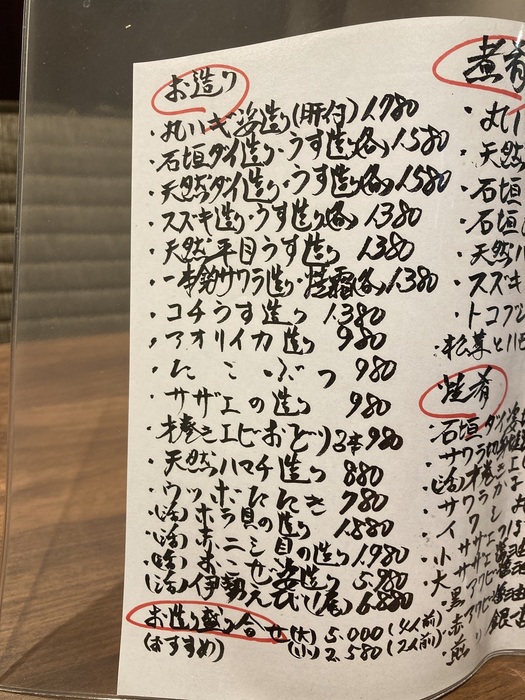 お造り
・丸ハギ姿造り(肝付) 1.780
・石垣ダイ造り・うす造り(各) 1.580
・天然ダイ造り・うす造り(各) 1.580
・スズキ造り・うす造り(各) 1.380
・天然平目うす造り 1.380
・一本釣サワラ造り・焼霜(各) 1.380
・コチうす造り 1.380
・アオリイカ造り 980
・たこぶつ 980
・サザエの造り 980
・才巻きエビおどり 3本 980
・天然ハマチ造り 880
・ウツボたたき 780
・(活)ホラ貝の造り 1.880
・(活)オニシ貝の造り 1.980
・(活)おこぜ姿造り 5.780
(活)伊勢えび(1尾) 6.880
お造り盛り合せ (大) 5.000 (4人前)
(おすすめ) (小) 2.580 (2人前)
煮肴
・丸ハ
・天然
・石垣
・石垣
・天然ハ
・スズキ
・トコブシ
・松茸とハモ
焼肴
・石垣ダイ
・サワラ
・(活)才巻きエ
・サワラかま
・イワシ
・小サザエ
・大サザエ
・黒アワビ
・赤アワビ
・銀